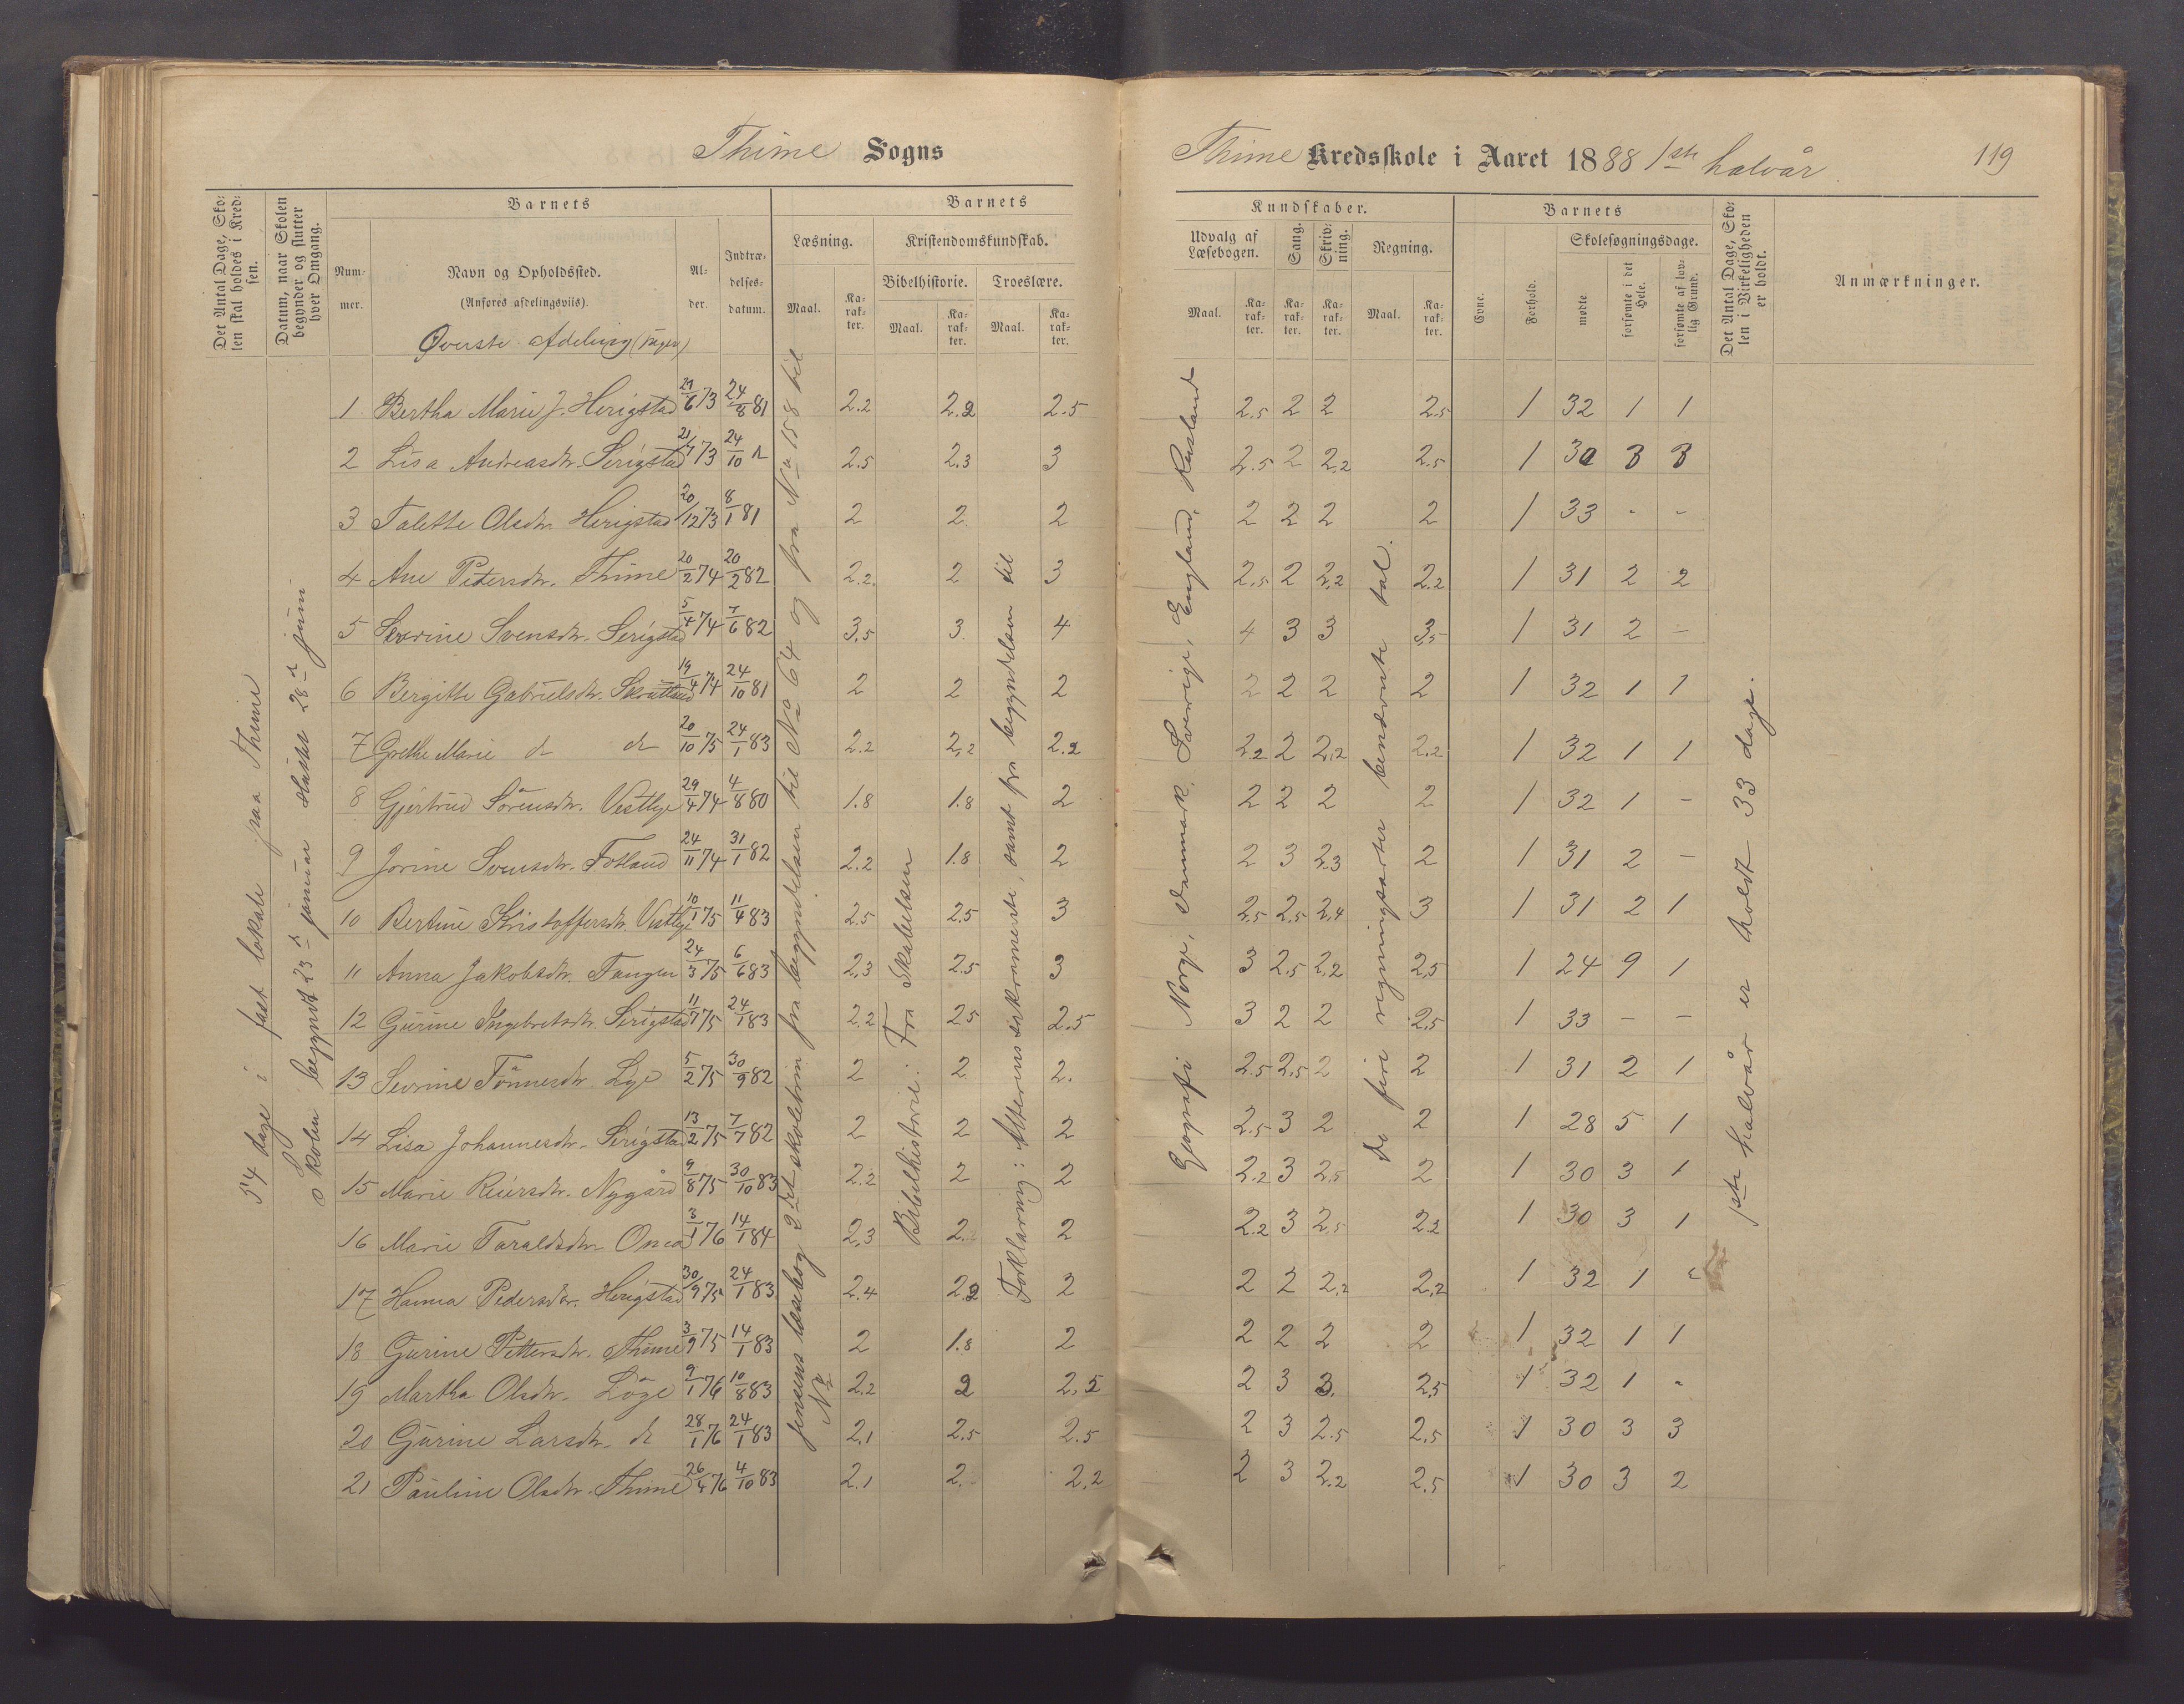 Thime Sogns
Det Antal Dage, Sko-
len skal holdes i Kred-
sen.
Datum, naar Skolen
begynder og slutter
hver Omgang.
Barnets
Num-
mer.
Navn og Opholdssted.
(Anføres afdelingsviis).
Al-
der.
Indtræ-
delses-
datum.
Barnets
Læsning.
Maal.
Ka-
rak-
ter.
Kristendomskundskab.
Bibelhistorie.
Maal.
Ka-
rak-
ter.
Troeslære.
Maal.
Ka-
rak-
ter.
Øverste afdeling (Piger)
54 dage i fast lokale paa Thime
Skolen begyndt 23d januar sluttet 28d juni
1 Bertha Marie J. Herigstad 29/6 73 24/8 81 2.2 2.2 2.5
2 Lisa Andreasdtr. Serigstad 21/7 73 24/10 2.5 2.3 3
3 Talette Olsdtr. Herigstad 20/12 73 8/1 81 2 2 2
4 Ane Petersdtr. Thime 20/2 74 20/2 82 2.2 2 3
5 Sevrine Svensdtr. Serigstad 5/4 74 7/6 82 3.5 3 4
6 Bergitte Gabrielsdtr. Skrattland 19/4 74 24/10 81 2 2 2
7 Grethe Marie d d 20/10 75 24/1 83 2.2 2.2 2.2
8 Gjertrud Sörensdtr. Vestlye 29/4 74 4/8 80 1.8 1.8 2
9 Jorine Svensdtr. Fotland 24/11 74 31/1 82 2.2 1.8 2
10 Bertine Kristoffersdtr. Vestlye 10/1 75 11/4 83 2.5 2.5 3
11 Anna Jakobsdtr. Tangen 24/3 75 6/6 83 2.3 2.5 3
12 Gurine Ingebretsdtr. Serigstad 11/1 75 24/1 83 2.2 2.5 2.5
13 Sevrine Tönnesdtr. Lye 5/2 75 30/9 82 2 2 2.
14 Lisa Johannesdtr. Serigstad 13/2 75 7/7 82 2 2 2
15 Marie Reiersdtr. Nygård 9/8 75 30/10 83 2.2 2 2
16 Marie Taraldsdtr. 3/1 76 14/1 84 2.3 2. 2
17 Hanna Pedersdtr. Herigstad 30/9 75 24/1 83 2.4 2.2 2
18 Gurine Pettersdtr. Thime 3/9 75 14/1 83 2 1.8 2
19 Martha Olsdtr. Löge 9/1 76 10/8 83 2.2 2 2.5
20 Gurine Larsdtr. d 28/1 76 24/1 83 2.1 2.5 2.5
21 Pauline Olsdtr. Thime 26/4 76 4/10 83 2.1 2. 2.2
jensens læsebog 2det skoletrin fra begyndelsen til No 64 og fra No 158 til
No
Bibelhistorie: Fra Skabelsen
Forklaring: Alterens sakramente, samt fra begyndelsen til
Thime Kredsskole i Aaret 1888 1ste halvår
119
Kundskaber.
Udvalg af
Læsebogen.
Maal.
Ka-
rak-
ter.
Sang.
Ka-
rak-
ter.
Skriv-
ning.
Ka-
rak-
ter.
Regning.
Maal.
Ka-
rak-
ter.
Barnets
Evne.
Forhold.
Skolesøgningsdage.
mødte
forsømte i det
Hele.
forsømte af lov-
lig Grund.
Det Antal Dage, Sko-
len i Virkeligheden
er holdt.
Anmærkninger.
2.5 2 2 2.5 1 32 1 1
2.5 2 2.2 2.5 1 30 3 3
2 2 2 2 1 33 - -
2.5 2 2.2 2.2 1 31 2 2
4 3 3 3.5 1 31 2 -
2 2 2 2 1 32 1 1
2.2 2 2.2 2.2 1 32 1 1
2 2 2 2 1 32 1 -
2 3 2.3 2 1 31 2 -
2.5 2.5 2.4 3 1 31 2 1
3 2.5 2.2 2.5 1 24 9 1
3 2 2 2.5 1 33 - -
2.5 2.5 2 2 1 31 2 1
2.5 3 2 2 1 28 5 1
2.2 3 2.5 2 1 30 3 1
2.2 3 2.5 2.2 1 30 3 1
2 2 2.2 2.2 1 32 1 -
2 2 2 2 1 32 1 1
2 3 3. 2.5 1 32 1 -
2 3 2.5 2.5 1 30 3 3
2 3 2.2 2.5 1 30 3 2
Geografi Norge, Danmark, Sverige, England, Rusland
De fire regningsarter benævnte tal.
1ste halvår er holdt 33 dage.